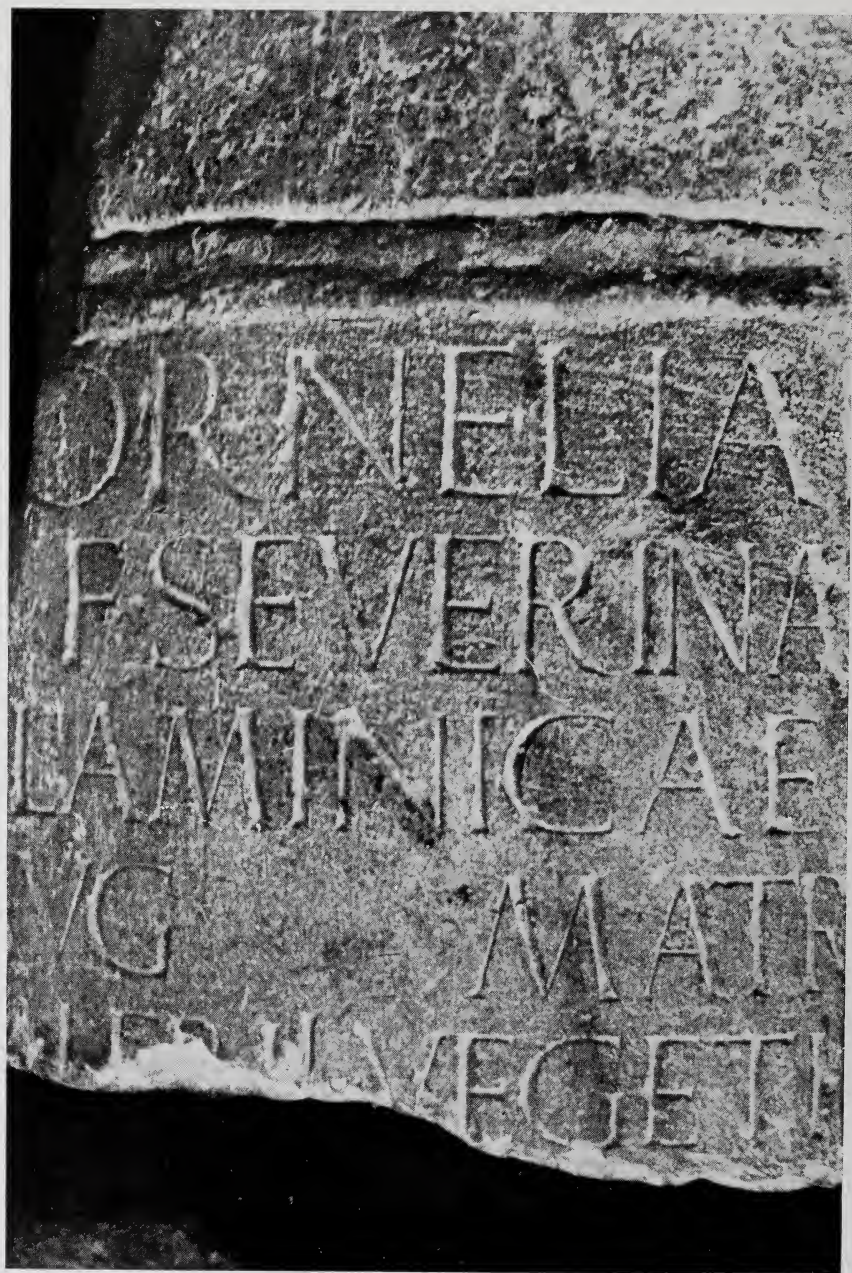 ORNELIA
F SEVERINA
LAMINICAE
VG MATR
VEGETI